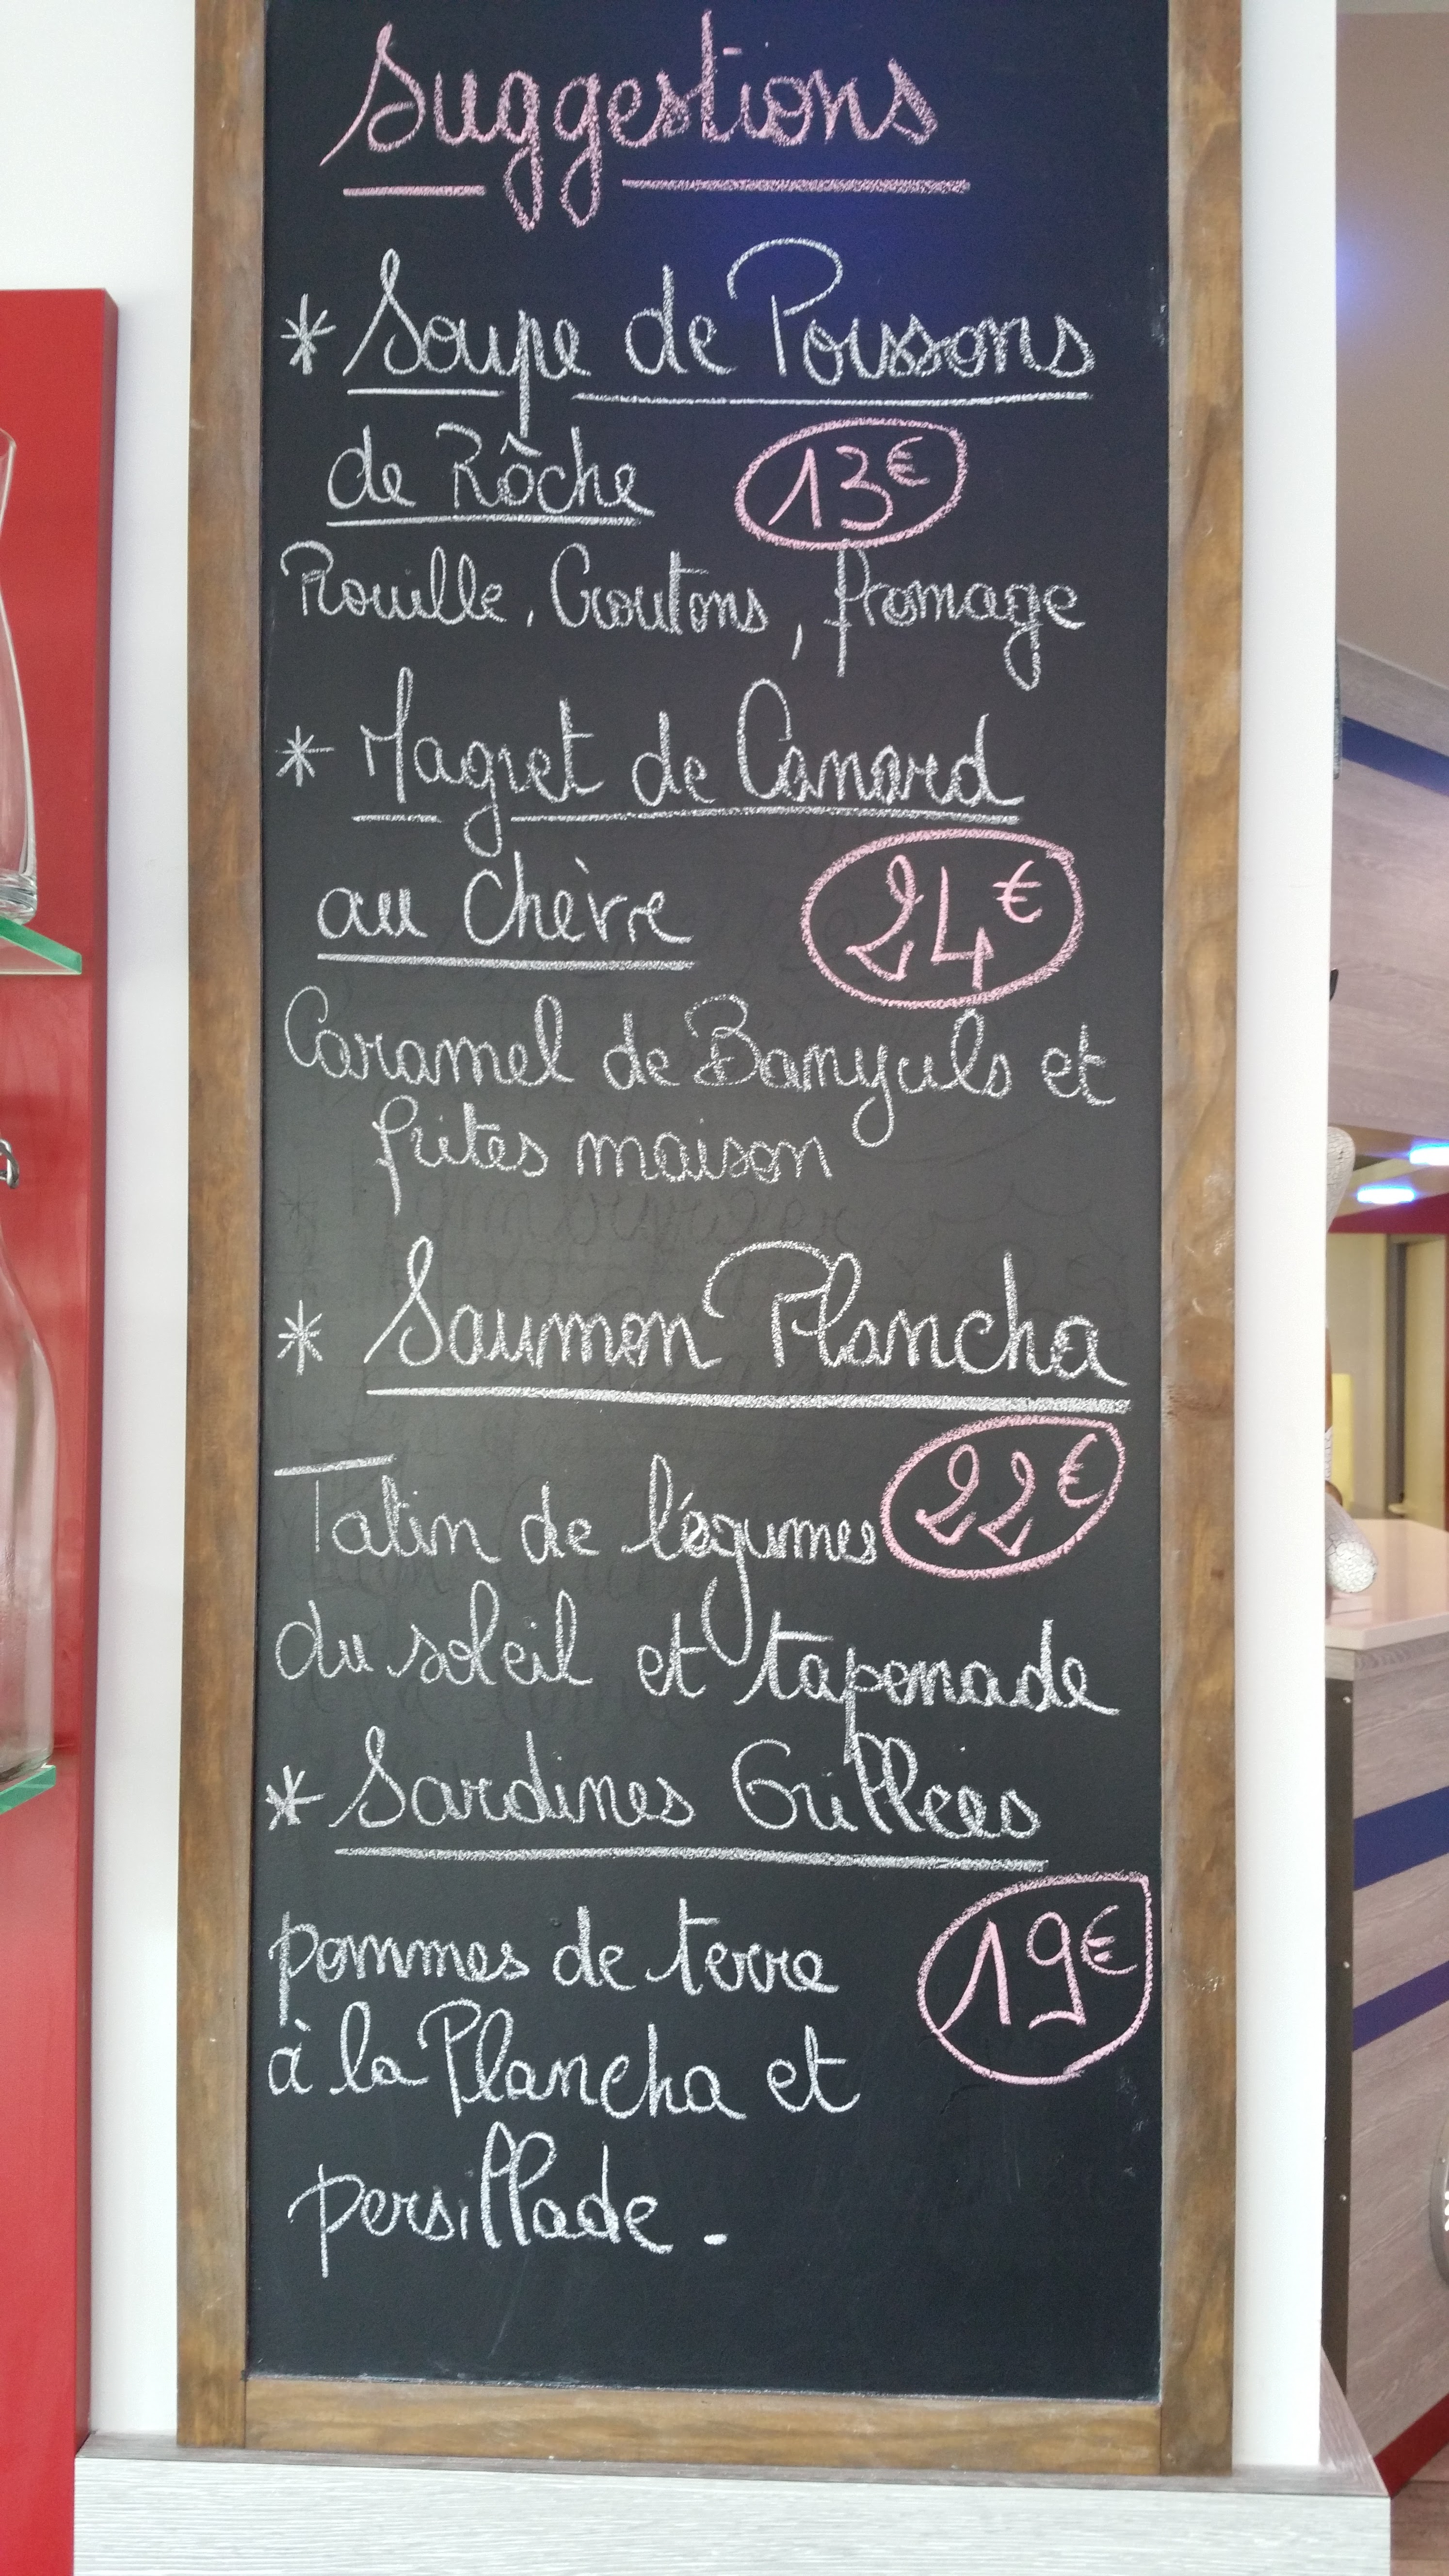 Suggestions
* Soupe de Poissons
de Rôche 13€
Rouille, Croutons, fromage
* Magret de Canard
au Chèvre 24€
Caramel de Banyuls et
frites maison
* Saumon Plancha
22€
Tatin de légumes
du soleil et tapenade
* Sardines Grillées
pommes de terre 19€
à la Plancha et
persillade.